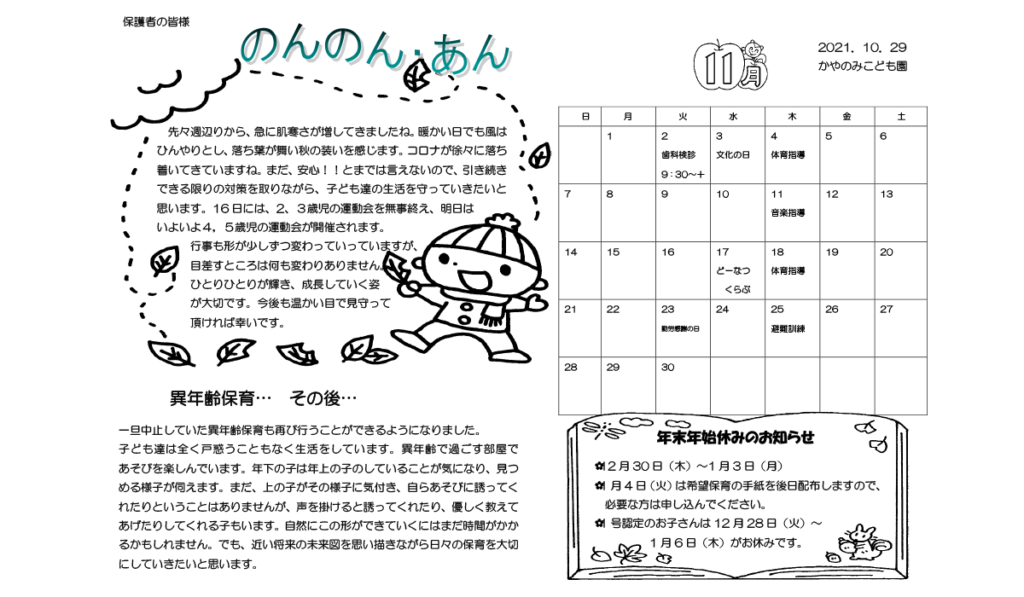 保護者の皆様
のんのん・あん
先々週辺りから、急に肌寒さが増してきましたね。暖かい日でも風は
ひんやりとし、落ち葉が舞い秋の装いを感じます。コロナが徐々に落ち
着いてきていますね。まだ、安心！！とまでは言えないので、引き続き
できる限りの対策を取りながら、子ども達の生活を守っていきたいと
思います。１６日には、２、３歳児の運動会を無事終え、明日は
いよいよ４，５歳児の運動会が開催されます。
行事も形が少しずつ変わっていっていますが、
目差すところは何も変わりありません。
ひとりひとりが輝き、成長していく姿
が大切です。今後も温かい目で見守って
頂ければ幸いです。
異年齢保育…　その後…
一旦中止していた異年齢保育も再び行うことができるようになりました。
子ども達は全く戸惑うこともなく生活をしています。異年齢で過ごす部屋で
あそびを楽しんでいます。年下の子は年上の子のしていることが気になり、見つ
める様子が伺えます。まだ、上の子がその様子に気付き、自らあそびに誘ってく
れたりということはありませんが、声を掛けると誘ってくれたり、優しく教えて
あげたりしてくれる子もいます。自然にこの形ができていくにはまだ時間がかか
るかもしれません。でも、近い将来の未来図を思い描きながら日々の保育を大切
にしていきたいと思います。
11月
2021．10．29
かやのみこども園
日 月 火 水 木 金 土
1 2 3 4 5 6
歯科検診 文化の日 体育指導
9：30～＋
7 8 9 10 11 12 13
音楽指導
14 15 16 17 18 19 20
どーなつ 体育指導
くらぶ
21 22 23 24 25 26 27
勤労感謝の日 避難訓練
28 29 30
年末年始休みのお知らせ
2月30日（木）～1月3日（月）
月4日（火）は希望保育の手紙を後日配布しますので、
必要な方は申し込んでください。
号認定のお子さんは12月28日（火）～
1月6日（木）がお休みです。